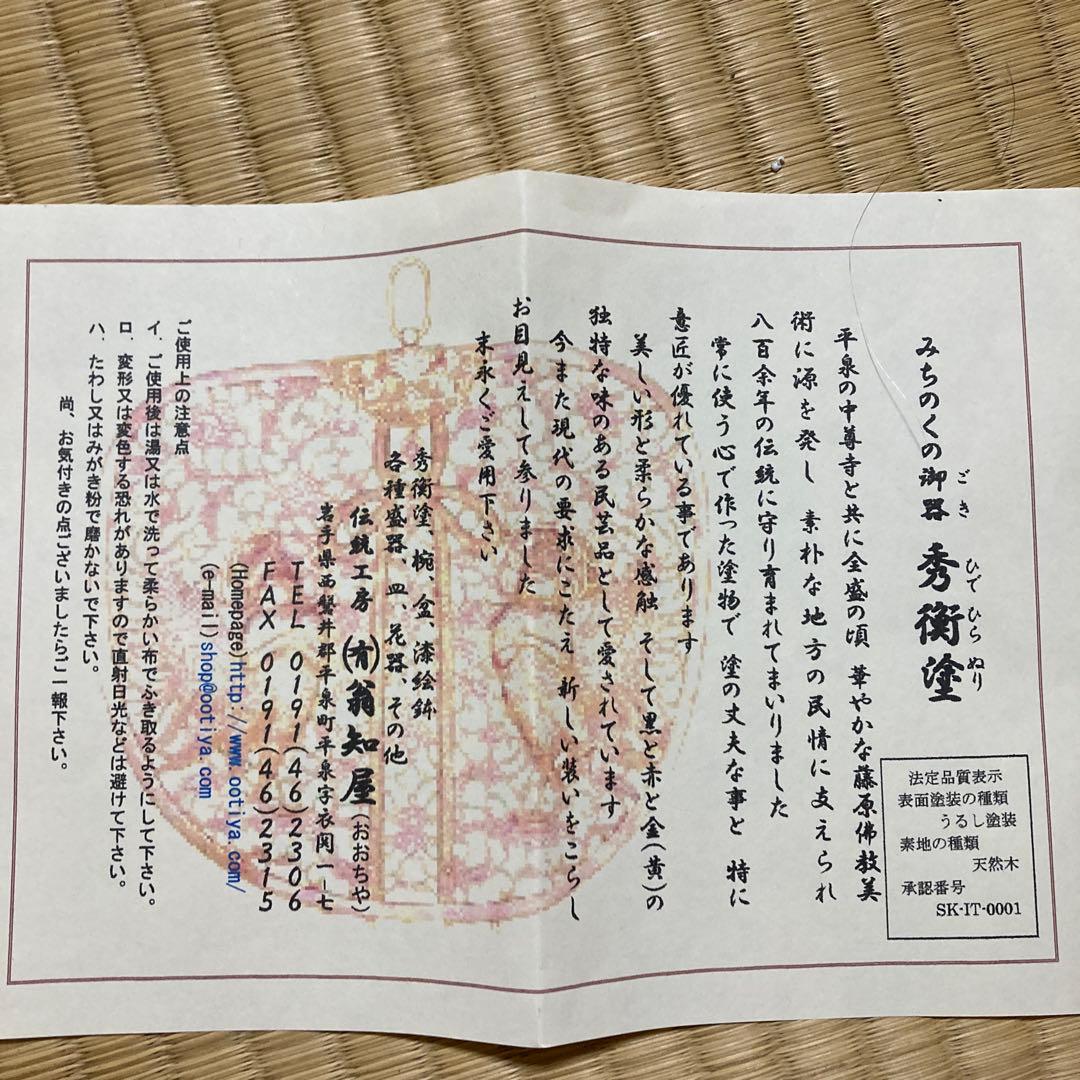 みちのくの御器 秀衡塗
ごき ひでひらぬり
平泉の中尊寺と共に全盛の頃 華やかな藤原佛教美
術に源を発し 素朴な地方の民情に支えられ
八百余年の伝統に守り育まれてまいりました
常に使う心で作った塗物で 塗の丈夫な事と 特に
意匠が優れている事であります
美しい形と柔らかな感触 そして黒と赤と金(黄)の
独特な味のある民芸品として愛されています
今また現代の要求にこたえ 新しい装いをこらし
お目見えして参りました
末永くご愛用下さい
秀衡塗、椀、盆、漆絵鉢
各種盛器、皿、花器、その他
伝統工房 (有)翁知屋(おおちや)
岩手県西磐井郡平泉町平泉字衣関一ー七
TEL 0191(46)2306
FAX 0191(46)2315
(Homepage)http://www.ootiya.com/
(e-mail)shop@ootiya.com
ご使用上の注意点
イ、ご使用後は湯又は水で洗って柔らかい布でふき取るようにして下さい。
ロ、変形又は変色する恐れがありますので直射日光などは避けて下さい。
ハ、たわし又はみがき粉で磨かないで下さい。
尚、お気付きの点ございましたらご一報下さい。
法定品質表示
表面塗装の種類
うるし塗装
素地の種類
天然木
承認番号
SK-IT-0001